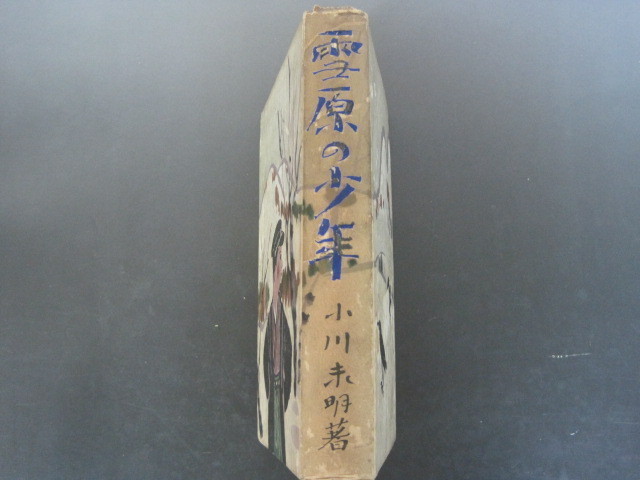 雪原の少年
小川未明著